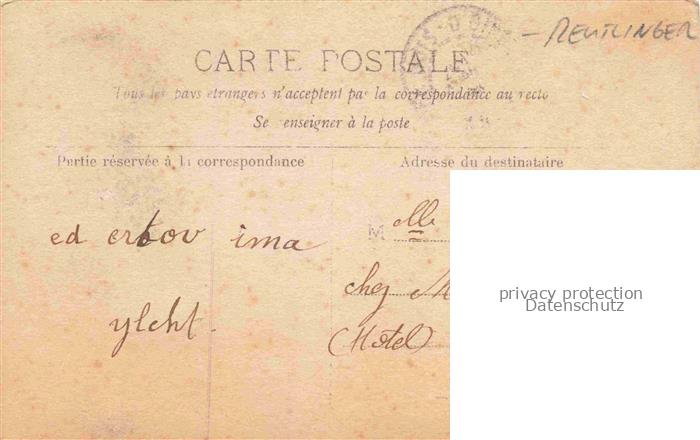 - REUTLINGER
CARTE POSTALE
Tous les pays étrangers n'acceptent pas la correspondance au recto
Se enseigner à la poste
Partie réservée à la correspondance
Adresse du destinataire
ed ertov ima
ylcht.
M elle
chez M
(Hotel)
privacy protection
Datenschutz